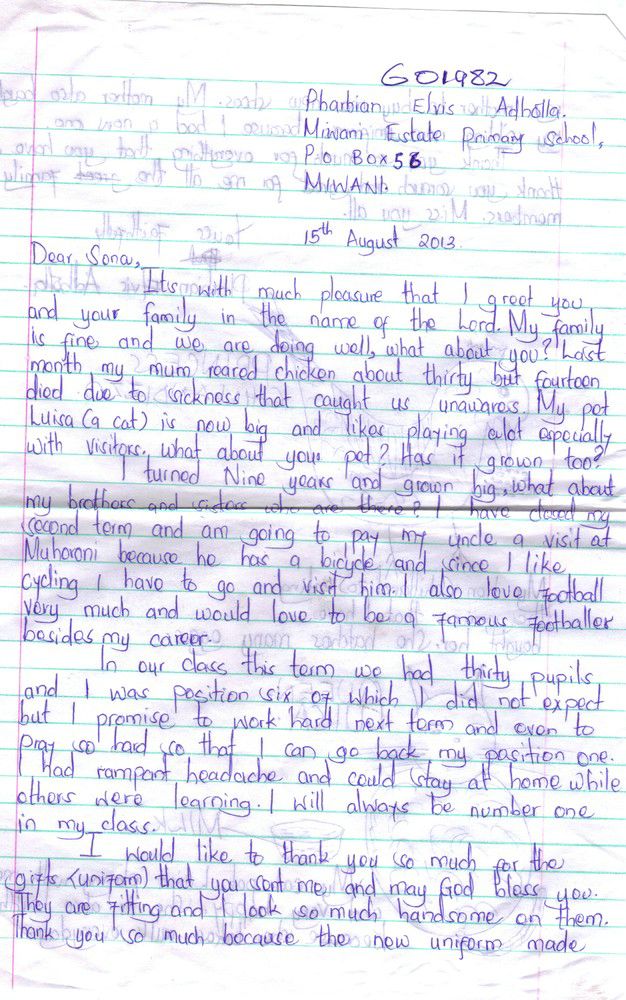 G01982
Pharbian Elvis Adholla.
Miwani Estate Primary School,
P.O BOX 56
MIWANI.
15th August 2013.
Dear Sona,
Its with much pleasure that I greet you
and your family in the name of the Lord. My family
is fine and we are doing well, what about you? Last
month my mum reared chicken about thirty but fourteen
died due to sickness that caught us unawares. My pet
Luisa (a cat) is now big and likes playing alot especially
with visitors. what about your pet? Has it grown too?
I turned Nine years and grown big, what about
my brothers and sisters who are there? I have closed my
second term and am going to pay my uncle a visit at
Muhoroni because he has a bicycle and since I like
cycling I have to go and visit him. I also love football
very much and would love to be a famous footballer
besides my career.
In our class this term we had thirty pupils
and I was position six of which I did not expect
but I promise to work hard next term and even to
pray so hard so that I can go back my position one.
I Had rampant headache and could stay at home while
others were learning. I will always be number one
in my class.
I would like to thank you so much for the
gifts (uniform) that you sent me, and may God bless you.
They are fitting and I look so much handsome on them.
Thank you so much because the new uniform made